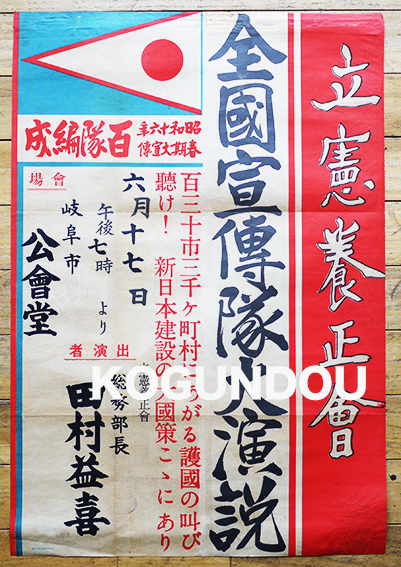 立憲養正會
全國宣傳隊大演説
百三十市三千ヶ町村にあがる護國の叫び
聽け！ 新日本建設の大國策こゝにあり
昭和十六年
春期大宣傳
百隊編成
六月十七日
午後七時 より
會場
岐阜市
公會堂
出演者
立憲養正會
総務部長
田村益喜
KOGUNDOU